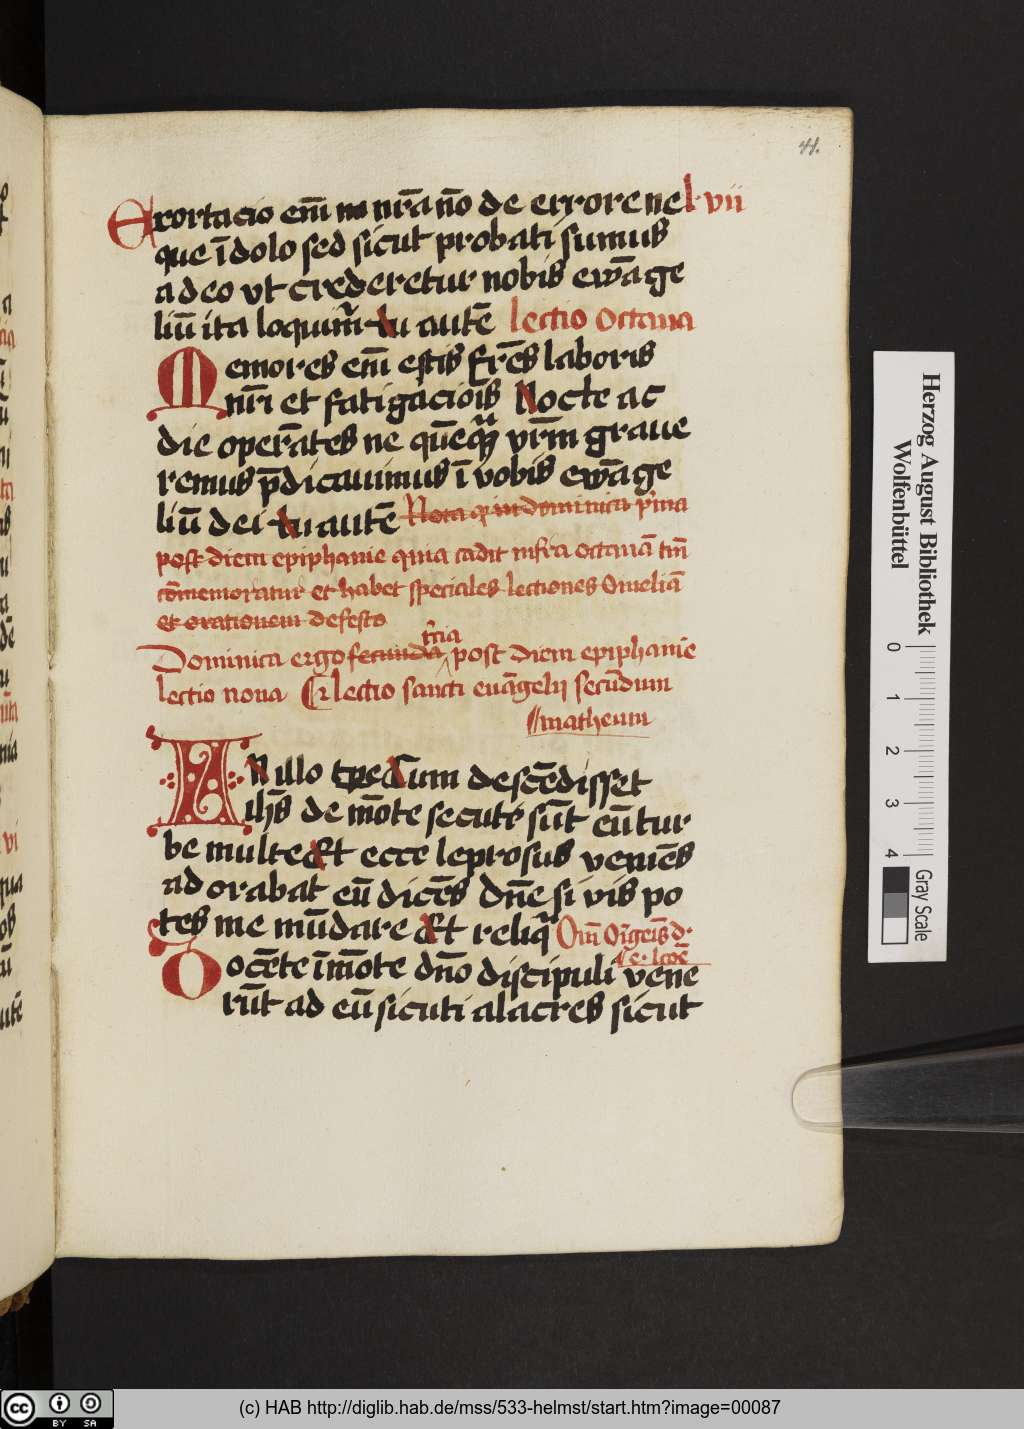 44.
Exortacio em̄ nr̄a nō de errore ne l· vii
que ī dolo sed sicut probati sumus
a deo vt crederetur nobis ewāge
liū ita loquim̄ tu autē lectio octaua
Memores em̄ estis fr̄es laboris
nr̄i et fatigacioīs Nocte ac
die operātes ne quēqȝ vr̄m graue
remus p̄dicauimus ī vobis ewāge
liū dei tu autē Nota q in dominica p̄ma
post diem epiphanie quia cadit infra octauā tm̄
cōmemoratur et habet speciales lectiones Omeliā
et orationem de festo
t̄cia
Dominica ergo secunda post diem epiphanīe
lectio nona lectio sancti euāgelij secūdum
matheum
IN illo tpe Cum descēdisset
ih̄s de mōte secute sūt eū tur
be multe Et ecce leprosus veniēs
adorabat eū dicēs dn̄e si vis po
tes me mūdare Et reliq̄ Om̄ Origeīs d·
e· lc̄oē
Docēte ī mōte dn̄o discipuli vene
rūt ad eū sicuti alacres sicut
Herzog August Bibliothek
Wolfenbüttel
0 1 2 3 4
Gray Scale
cc BY SA
(c) HAB http://diglib.hab.de/mss/533-helmst/start.htm?image=00087